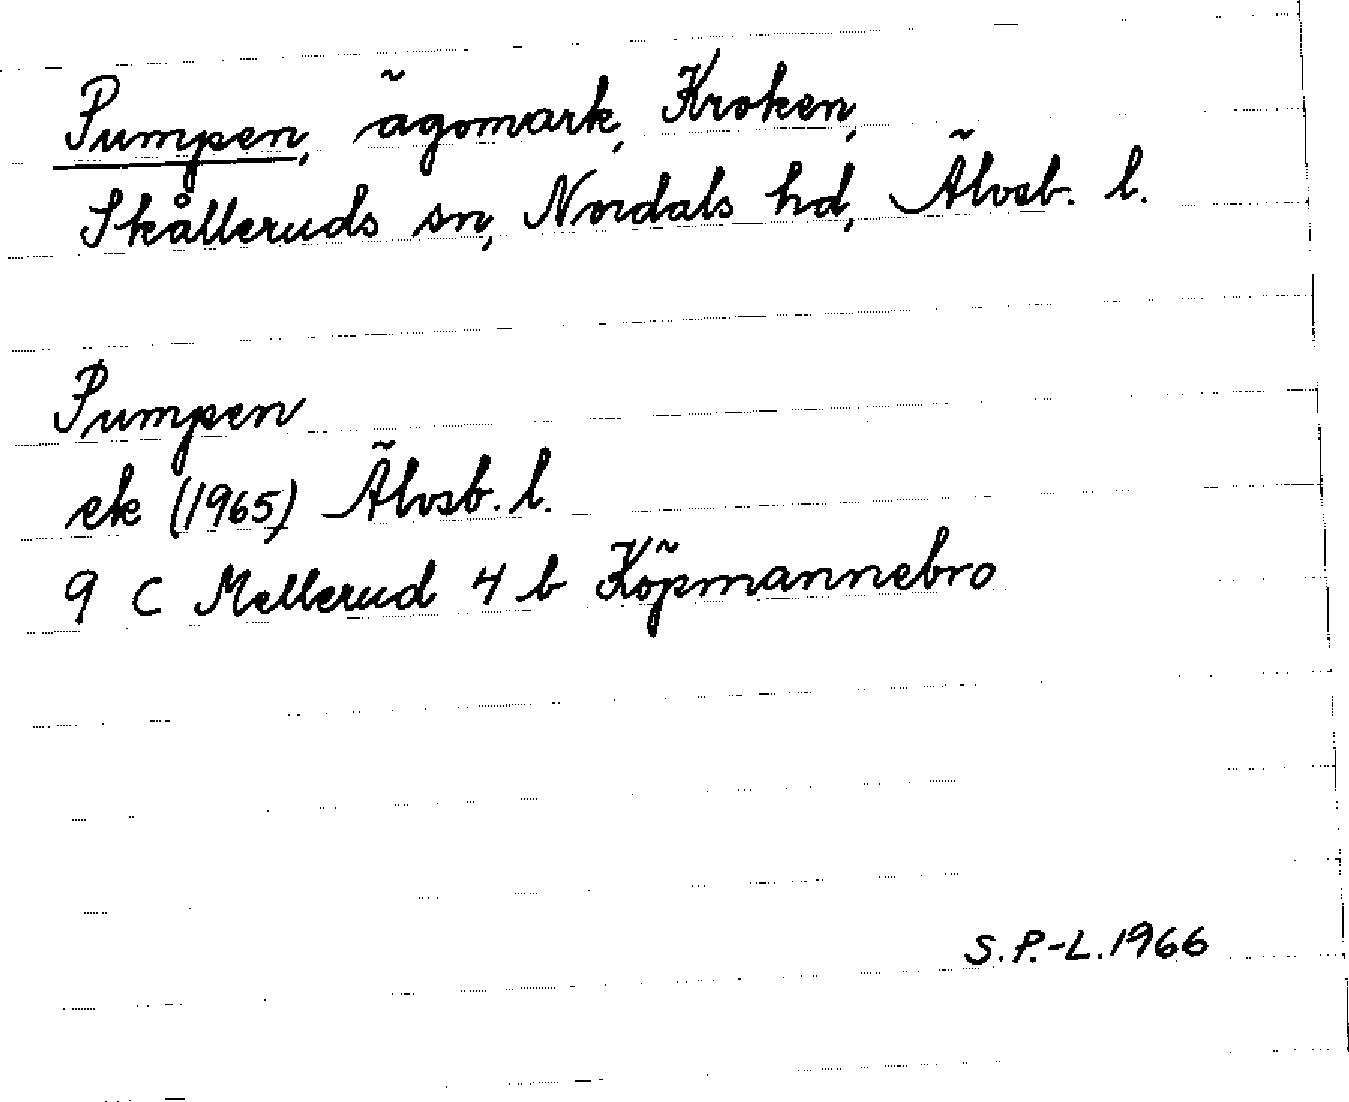 Pumpen, ägomark, Kroken,
Skålleruds sn, Nordals hd, Älvsb. l.
Pumpen
ek (1965) Älvsb. l.
9 C Mellerud 4 b Köpmannebro
S.P.-L. 1966